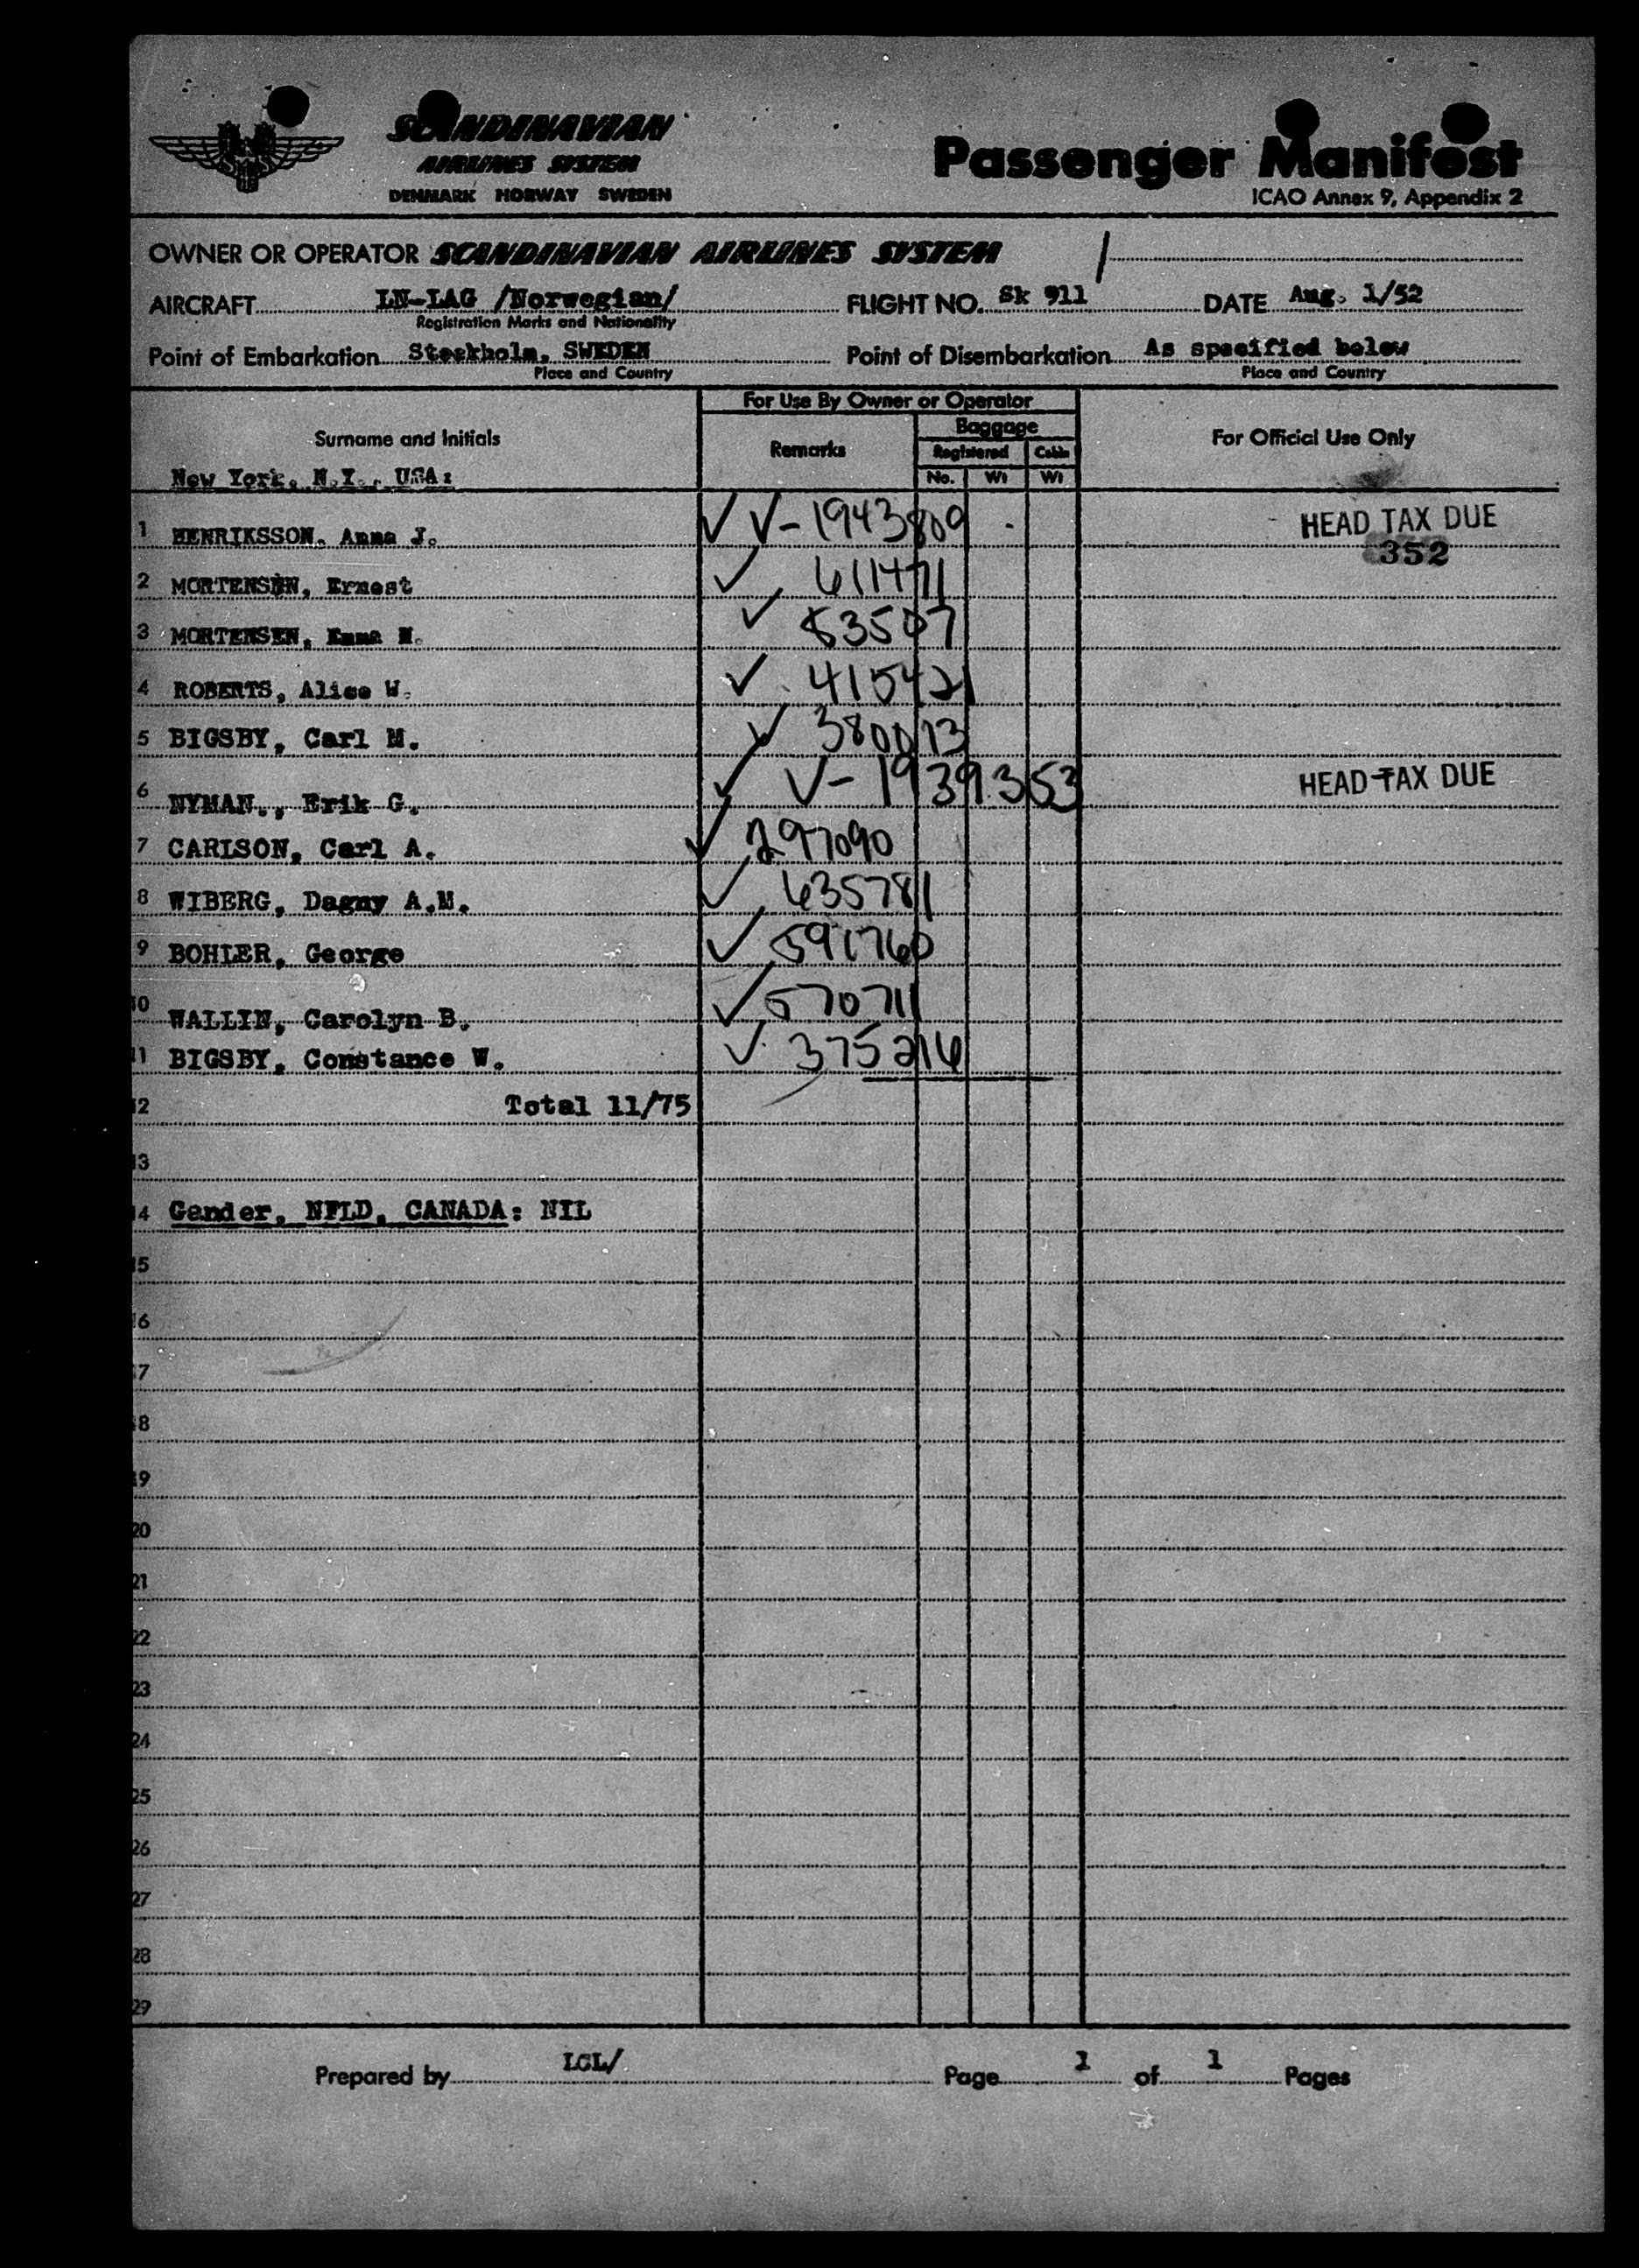 SCANDINAVIAN
AIRLINES SYSTEM
DENMARK NORWAY SWEDEN
Passenger Manifest
ICAO Annex 9, Appendix 2
OWNER OR OPERATOR SCANDINAVIAN AIRLINES SYSTEM
AIRCRAFT LN-LAG /Norwegian/ FLIGHT NO. Sk 911 DATE Aug. 1/52
Registration Marks and Nationality
Point of Embarkation Stockholm, SWEDEN Point of Disembarkation As specified below
Place and Country Place and Country
For Use By Owner or Operator
Surname and Initials Remarks Baggage For Official Use Only
Registered Cabin
New York, N.Y., USA: No. Wt Wt
1 HENRIKSSON, Anna J. ✓ V-1943809 HEAD TAX DUE
352
2 MORTENSEN, Ernest ✓ 611471
3 MORTENSEN, Emma N. ✓ 83507
4 ROBERTS, Alice W. ✓ 415421
5 BIGSBY, Carl M. ✓ 380073
6 NYMAN., Erik G. ✓ V-1939353 HEAD TAX DUE
7 CARLSON, Carl A. ✓ 297090
8 WIBERG, Dagny A.M. ✓ 635781
9 BOHLER, George ✓ 591760
10 WALLIN, Carolyn B. ✓ 570711
11 BIGSBY, Constance W. ✓ 375216
12 Total 11/75
13
14 Gander, NFLD, CANADA: NIL
15
16
17
18
19
20
21
22
23
24
25
26
27
28
29
Prepared by LCL/ Page 1 of 1 Pages